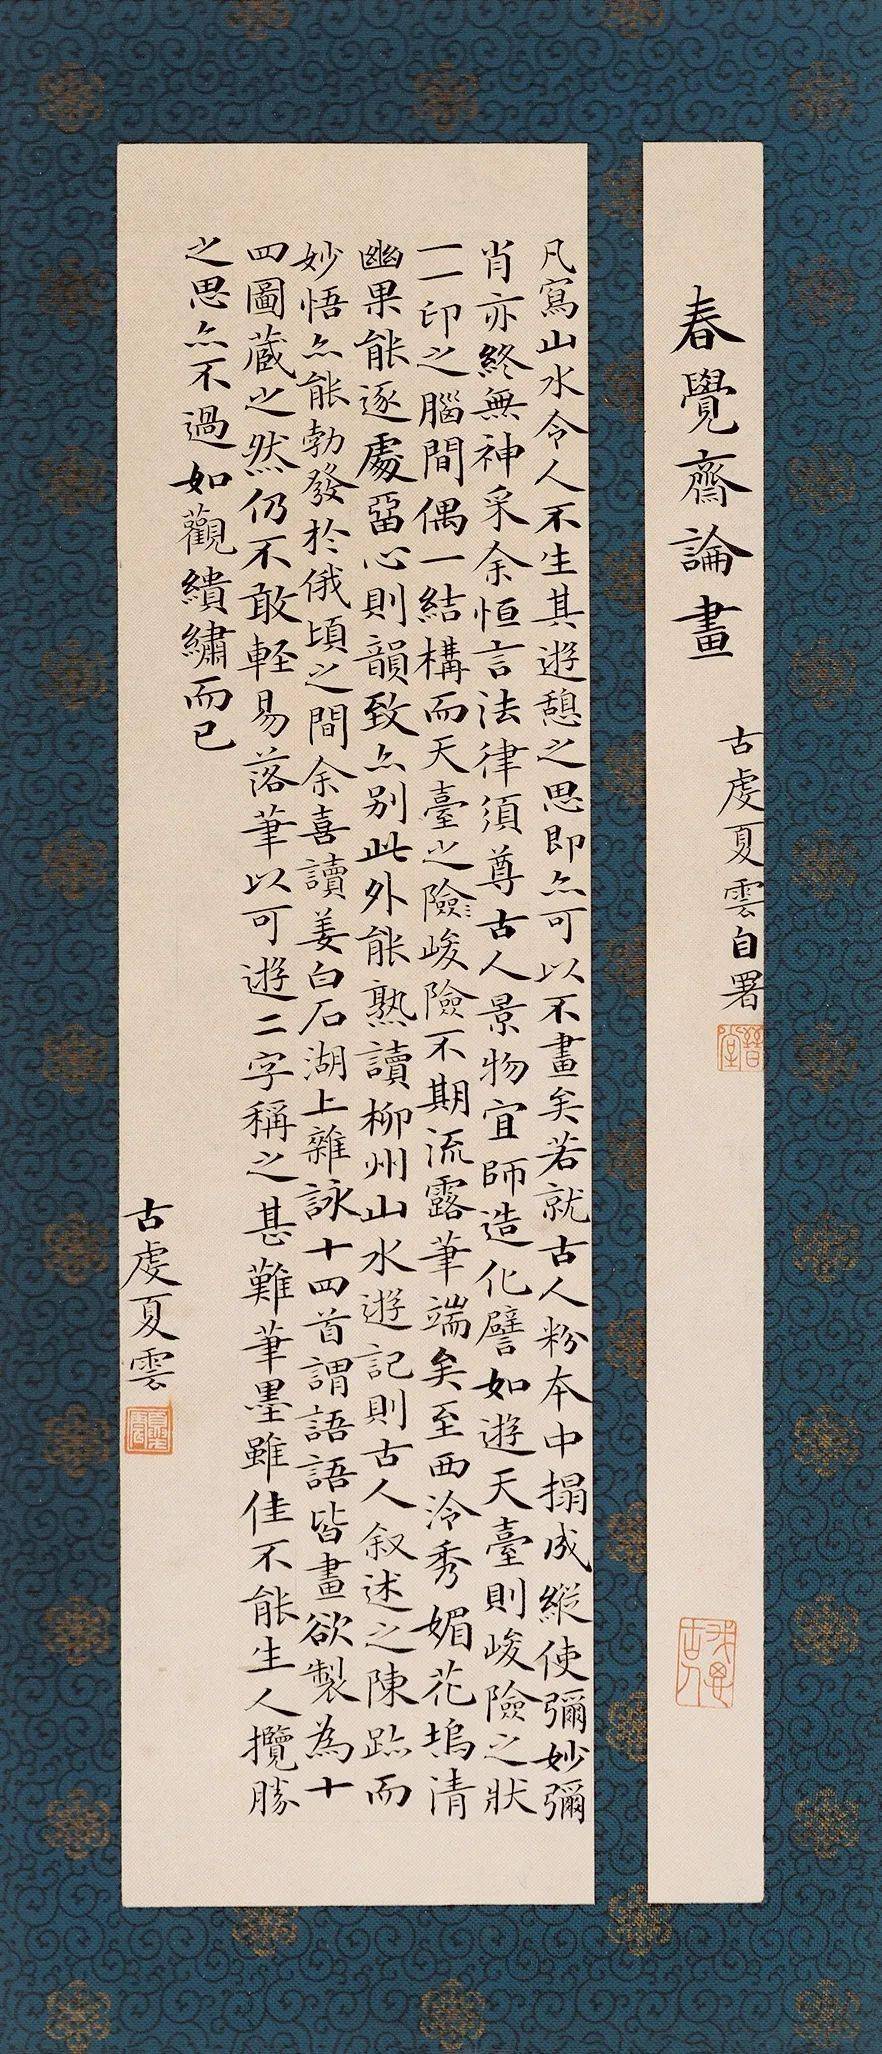 春覺齋論畫
古虔夏雲自署
凡寫山水令人不生其遊憩之思即亦可以不畫矣若就古人粉本中搨成縱使彌妙彌
肖亦終無神采余恒言法律須尊古人景物宜師造化譬如遊天臺則峻險之狀
一一印之腦間偶一結構而天臺之險峻險不期流露筆端矣至西泠秀媚花塢清
幽果能逐處留心則韻致亦別此外能熟讀柳州山水遊記則古人叙述之陳跡而
妙悟亦能勃發於俄頃之間余喜讀姜白石湖上雜詠十四首謂語語皆畫欲製為十
四圖藏之然仍不敢輕易落筆以可遊二字稱之甚難筆墨雖佳不能生人攬勝
之思亦不過如觀繢繡而已
古虔夏雲